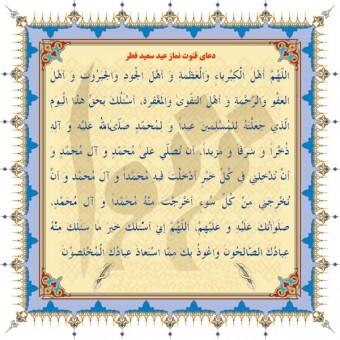 دعای قنوت نماز عید سعید فطر
اَللّهُمَّ اَهْلَ الْكِبْرِياءِ وَالْعَظَمَةِ وَ اَهْلَ الْجُودِ وَالْجَبَرُوتِ وَ اَهْلَ
الْعَفْوِ وَالرَّحْمَةِ وَ اَهْلَ التَّقْوى وَالْمَغْفِرَةِ، اَسْئَلُكَ بِحَقِّ هذَا الْيَومِ
الَّذي جَعَلْتَهُ لِلْمُسْلِمينَ عيداً وَ لِمُحَمَّدٍ صَلَّى‌اللهُ عَلَيْهِ وَ آلِهِ
ذُخْراً وَ شَرَفاً وَ مَزيداً، اَنْ تُصَلِّيَ عَلى مُحَمَّدٍ وَ آلِ مُحَمَّدٍ وَ
اَنْ تُدْخِلَني في كُلِّ خَيْرٍ اَدْخَلْتَ فيهِ مُحَمَّداً وَ آلَ مُحَمَّدٍ وَ اَنْ
تُخْرِجَني مِنْ كُلِّ سُوءٍ اَخْرَجْتَ مِنْهُ مُحَمَّداً وَ آلَ مُحَمَّدٍ،
صَلَواتُكَ عَلَيْهِ وَ عَلَيْهِمْ، اَللّهُمَّ اِنّي اَسْئَلُكَ خَيْرَ ما سَئَلَكَ مِنْهُ
عِبادُكَ الصّالِحُونَ وَ اَعُوذُ بِكَ مِمَّا اسْتَعاذَ عِبادُكَ الْمُخْلَصُونَ